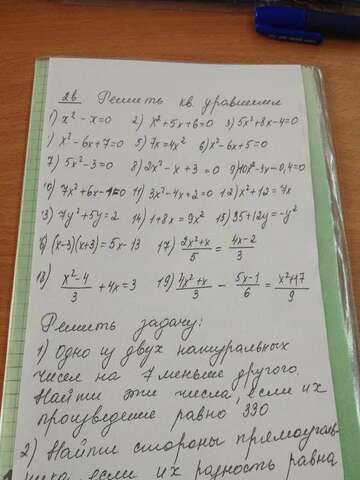 2в Решить кв. уравнения
1) x² - x = 0 2) x² + 5x + 6 = 0 3) 5x² + 8x - 4 = 0
) x² - 6x + 7 = 0 5) 7x = 4x² 6) x² - 6x + 5 = 0
7) 5x² - 3 = 0 8) 2x² - x + 3 = 0 9) 10x² - 3x - 0,4 = 0
10) 7x² + 6x - 1 = 0 11) 3x² - 4x + 2 = 0 12) x² + 12 = 7x
13) 7y² + 5y = 2 14) 1 + 8x = 9x² 15) 35 + 12y = -y²
16) (x-3)(x+3) = 5x - 13 17) (2x² + x)/5 = (4x - 2)/3
18) (x² - 4)/3 + 4x = 3 19) (4x² + x)/3 - (5x - 1)/6 = (x² + 17)/9
Решить задачу:
1) Одно из двух натуральных
чисел на 7 меньше другого.
Найти эти числа, если их
произведение равно 330
2) Найти стороны прямоуголь-
ника, если их разность равна